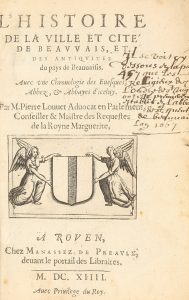 L'HISTOIRE
DE LA VILLE ET CITE
DE BEAVVAIS, ET
DES ANTIQVITEZ
du pays de Beauuaisis.
Auec vne Chronologie des Euesques,
Abbez, & Abbayes d'iceluy.
Par M. Pierre Louuet Aduocat en Parlement,
Conseiller & Maistre des Requestes
de la Royne Marguerite,
A ROVEN,
Chez MANASSEZ DE PREAVLX,
deuant le portail des Libraires.
M. DC. XIIII.
Auec Priuilege du Roy.